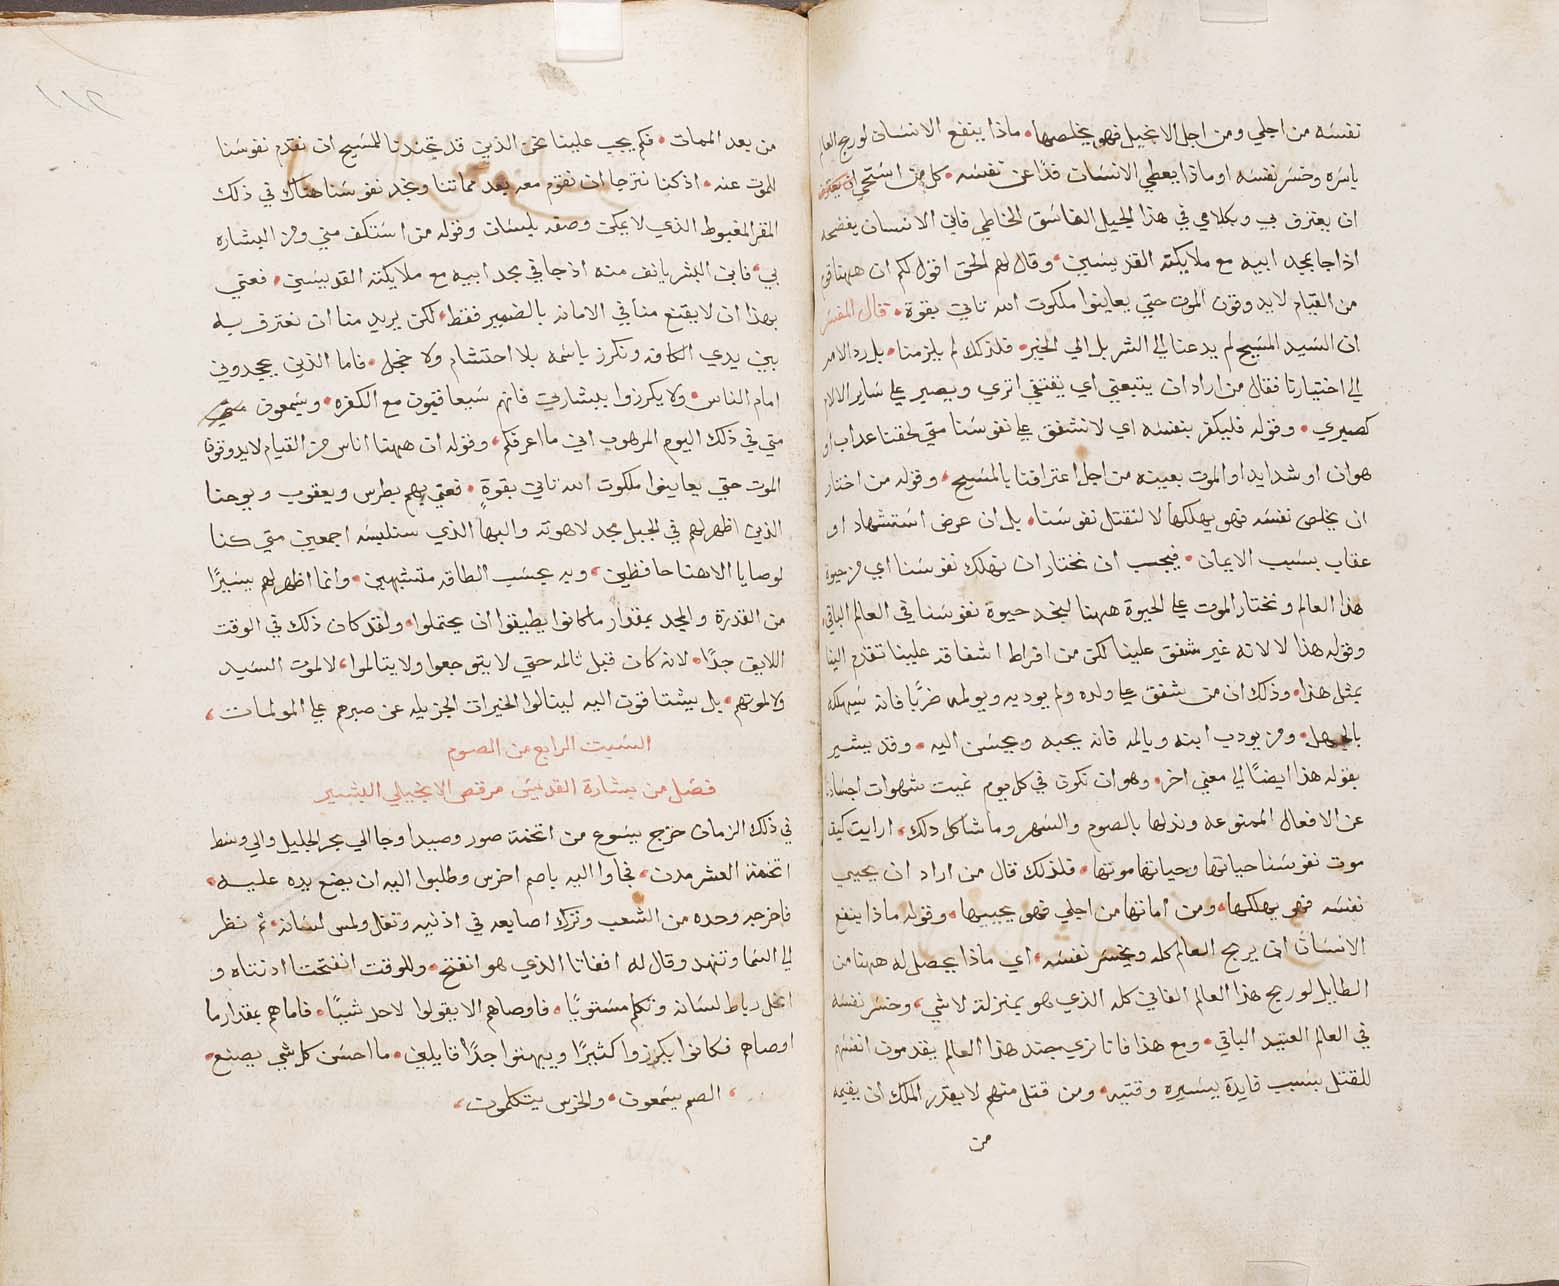 نفسه من اجلي ومن اجل الانجيل فهو يخلصها. ماذا ينفع الانسان لو ربح العالم
باسره وخسر نفسه او ماذا يعطي الانسان فدًا عن نفسه. كل من استحي ان يعترف
ان يعترف بي وبكلامي في هذا الجيل الفاسق الخاطي فابن الانسان يفضحه
اذا جا بمجد ابيه مع ملايكته القديسين، وقال لهم الحق اقول لكم ان ههنا قوم
من القيام لا يدوقون الموت حتي يعاينوا ملكوت الله تاتي بقوة. قال المفسر
ان السيد المسيح لم يدعنا الي الشر بل الي الخير. فلذلك لم يلزمنا. بل رد الامر
الي اختيارنا فقال من اراد ان يتبعني اي يقتفي اثري ويصير علي ساير الالام
كصبري. وقوله فليكفر بنفسه اي لا نشفق علي نفوسنا متي لحقنا عداب او
هوان او شدايد او الموت بعينه من اجل اعترافنا بالمسيح، وقوله من اختار
ان يخلص نفسه فهو يهلكها لا لنقتل نفوسنا. بل ان عرض استشهاد او
عقاب بسبب الايمان. فيجب ان نختار ان نهلك نفوسنا اي من حيوة
هذا العالم ونختار الموت علي الحيوة ههنا لنجد حيوة نفوسنا في العالم الباقي،
وقوله هذا لا لانه غير شفق علينا لكن من افراط اشفاقه علينا تقدم الينا
بمثل هذا. وذلك ان من شفق علي ولده ولم يوديه ويولمه ضربًا فانه سيهلكه
بالجهل. ومن يودب ابنه ويالمه فانه يحبه ويحسن اليه. وقد يشير
بقوله هذا ايضًا الي معني اخر. وهو ان نكون في كل يوم نميت شهوات اجسادنا
عن الافعال الممنوعه ونذلها بالصوم والسهر وما شاكل دلك، ارايت كيف
موت نفوسنا حياتها وحياتها موتها. فلذلك قال من اراد ان يحيي
نفسه فهو يهلكها. ومن اماتها من اجلي فهو يحييها. وقوله ماذا ينفع
الانسان ان يربح العالم كله ويخسر نفسه. اي ماذا يحصل له ههنا من
الطايل لو ربح هذا العالم الفاني كله الذي هو بمنزلة لا شي، وخسر نفسه
في العالم العتيد الباقي. ومع هذا فانا نري جند هذا العالم يقدمون انفسهم
للقتل بسبب فايدة يسيره وقتيه. ومن قتل منهم لا يقدر الملك ان يقيمه
من
من بعد الممات. فكم يجب علينا نحن الذين قد تجندنا للمسيح ان نقدم نفوسنا
للموت عنه. اذ كنا نترجا ان نقوم معه بعد مماتنا ونجد نفوسنا هناك في ذلك
المقر المغبوط الذي لا يمكن وصفه بلسان وقوله من استنكف مني ومن البشاره
بي، فابن البشر يانف منه اذ جا في مجد ابيه مع ملايكته القديسين. فعني
بهذا ان لا يقنع منا في الامانه بالضمير فقط، لكن يريد منا ان نعترف به
بين يدي الكافه ونكرز باسمه بلا احتشام ولا خجل. فاما الذين يجحدوني
امام الناس. ولا يكرزوا ببشارتي فانهم سيعاقبون مع الكفره. ويسمعون
مني في ذلك اليوم المرهوب اني ما اعرفكم، وقوله ان ههنا اناس من القيام لا يدوقون
الموت حتي يعاينوا ملكوت الله تاتي بقوةٍ. فعني بهم بطرس ويعقوب ويوحنا
الذين اظهر لهم في الجبل مجد لاهوته والبها الذي سنلبسه اجمعين متي كنا
لوصايا الاهنا حافظين، وبه بحسب الطاقه متشبهين. وانما اظهر لهم يسيرًا
من القدرة والمجد بمقدار ما كانوا يطيقوا ان يحتملوا. ولقد كان ذلك في الوقت
اللايق جدًا. لانه كان قبل تالمه حتي لا يتوجعوا ولا يتالموا، لا لموت السيد
ولا لموتهم. بل يشتاقون اليه لينالوا الخيرات الجزيله عن صبرهم علي المولمات،
السبت الرابع من الصوم
فصل من بشارة القديس مرقص الانجيلي البشير
في ذلك الزمان خرج يسوع من اتخمة صور وصيدا وجا الي بحر الجليل والي وسط
اتخمة العشر مدن. فجاوا اليه باصم اخرس وطلبوا اليه ان يضع يده عليه.
فاخرجه وحده من الشعب وترك اصابعه في اذنيه وتفل ولمس لسانه. ثم نظر
الي السما وتنهد وقال له افغاتا الذي هو انفتح. وللوقت انفتحت ادنتاه و
انحل رباط لسانه وتكلم مستويًا. فاوصاهم الا يقولوا لاحد شيًا. فاما هم بمقدار ما
اوصاهم فكانوا يكرزوا كثيرًا ويبهتوا جدًا قايلين. ما احسن كل شي يصنع.
الصم يسمعون. والخرس يتكلمون،